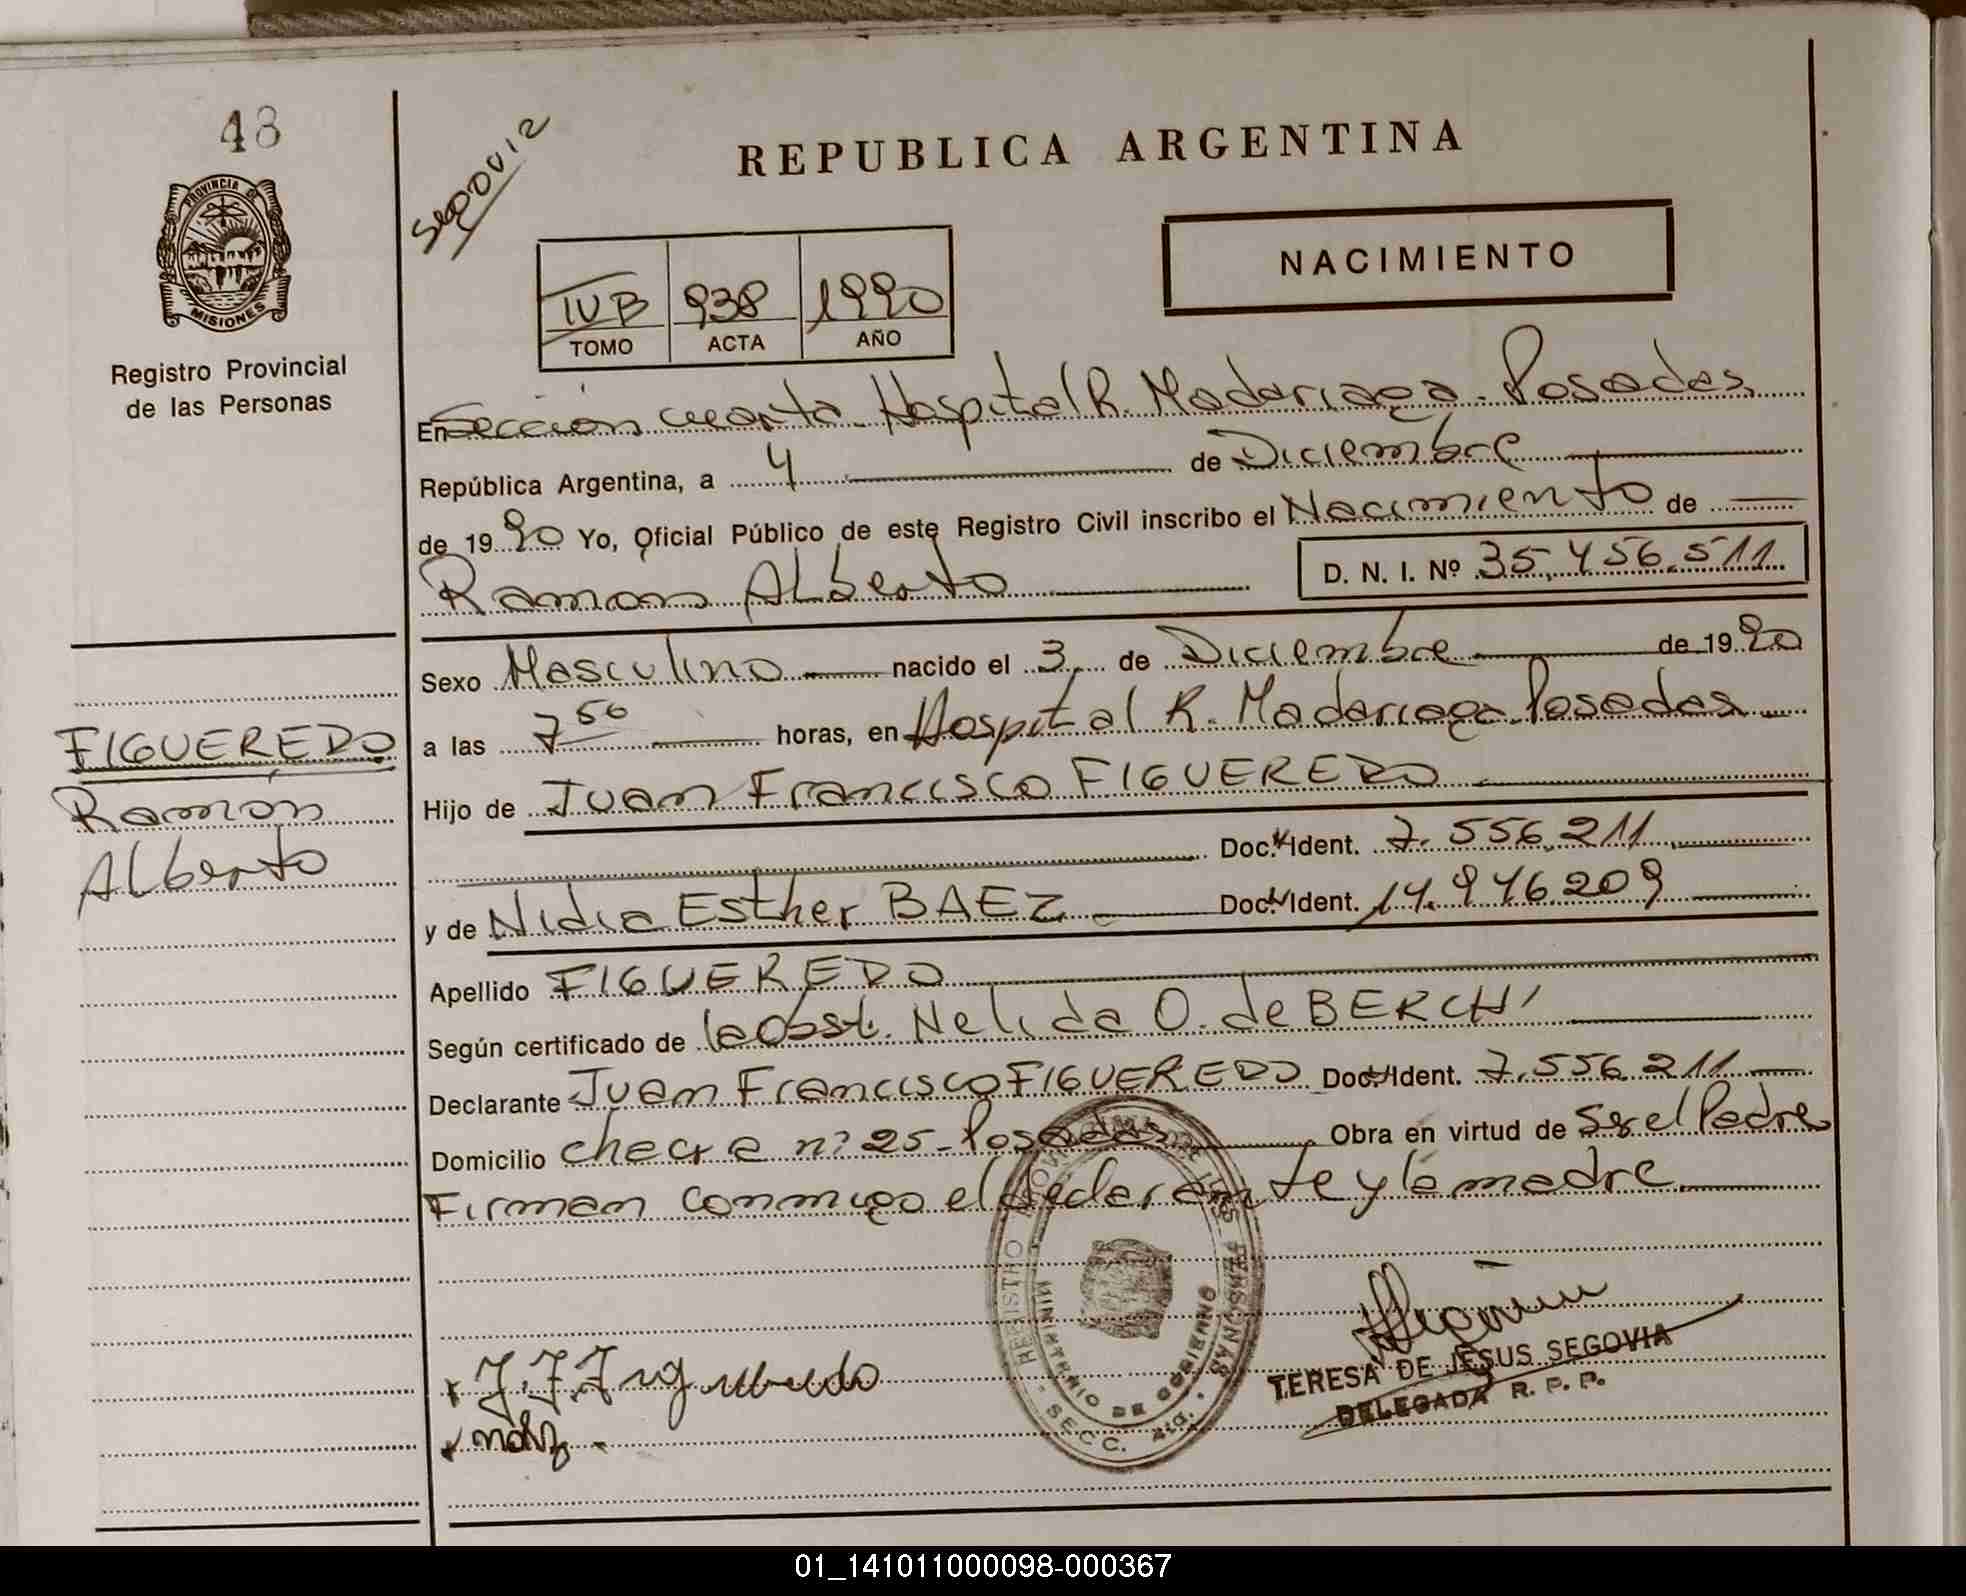 48
PROVINCIA DE
MISIONES
Registro Provincial
de las Personas
FIGUEREDO
Ramón
Alberto
Segovia
REPUBLICA ARGENTINA
NACIMIENTO
IV B 938 1990
TOMO ACTA AÑO
En Sección cuarta. Hospital R. Madariaga. Posadas
República Argentina, a 4 de Diciembre
de 1990 Yo, Oficial Público de este Registro Civil inscribo el Nacimiento de
Ramon Alberto D. N. I. Nº 35.456.511
Sexo Masculino nacido el 3 de Diciembre de 1990
a las 7 50 horas, en Hospital R. Madariaga Posadas
Hijo de Juan Francisco FIGUEREDO
Doc. Ident. 7.556.211
y de Nidia Esther BAEZ Doc. Ident. 14.946.209
Apellido FIGUEREDO
Según certificado de la Obst. Nelida O. de BERCHI
Declarante Juan Francisco FIGUEREDO Doc. Ident. 7.556.211
Domicilio chacra nº 25 - Posadas Obra en virtud de Ser el Padre
Firman conmigo el declarante y la madre
REGISTRO PROVINCIAL DE LAS PERSONAS
MINISTERIO DE GOBIERNO
SECC. 4ta.
J. F. Figueredo
TERESA DE JESUS SEGOVIA
DELEGADA R. P. P.
01_141011000098-000367